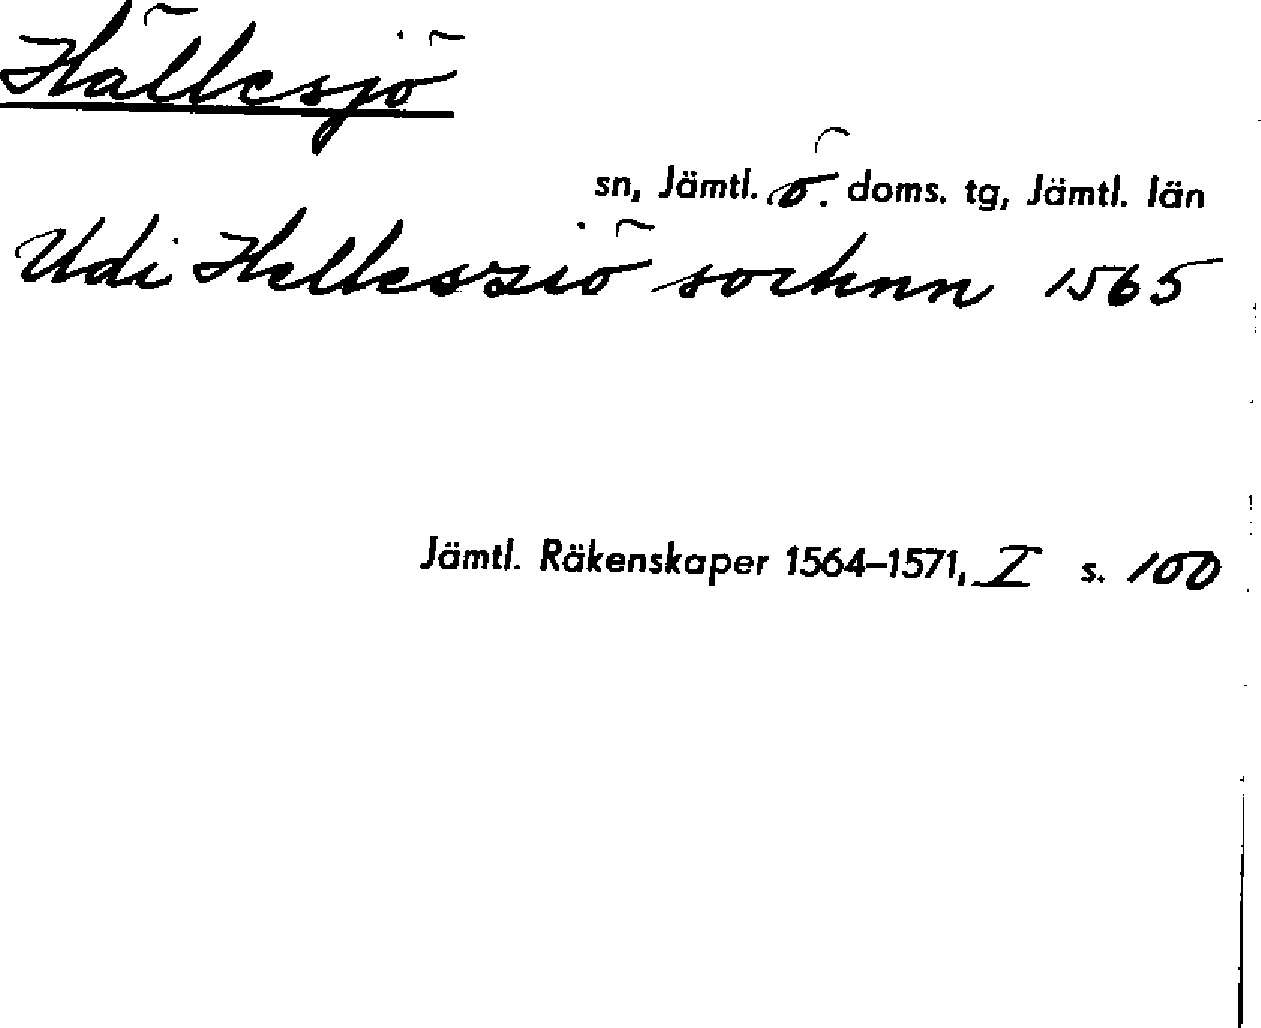 Hällesjö
sn, Jämtl. ö. doms. tg, Jämtl. län
Udi Hellesziö socknn 1565
Jämtl. Räkenskaper 1564–1571, I s. 100